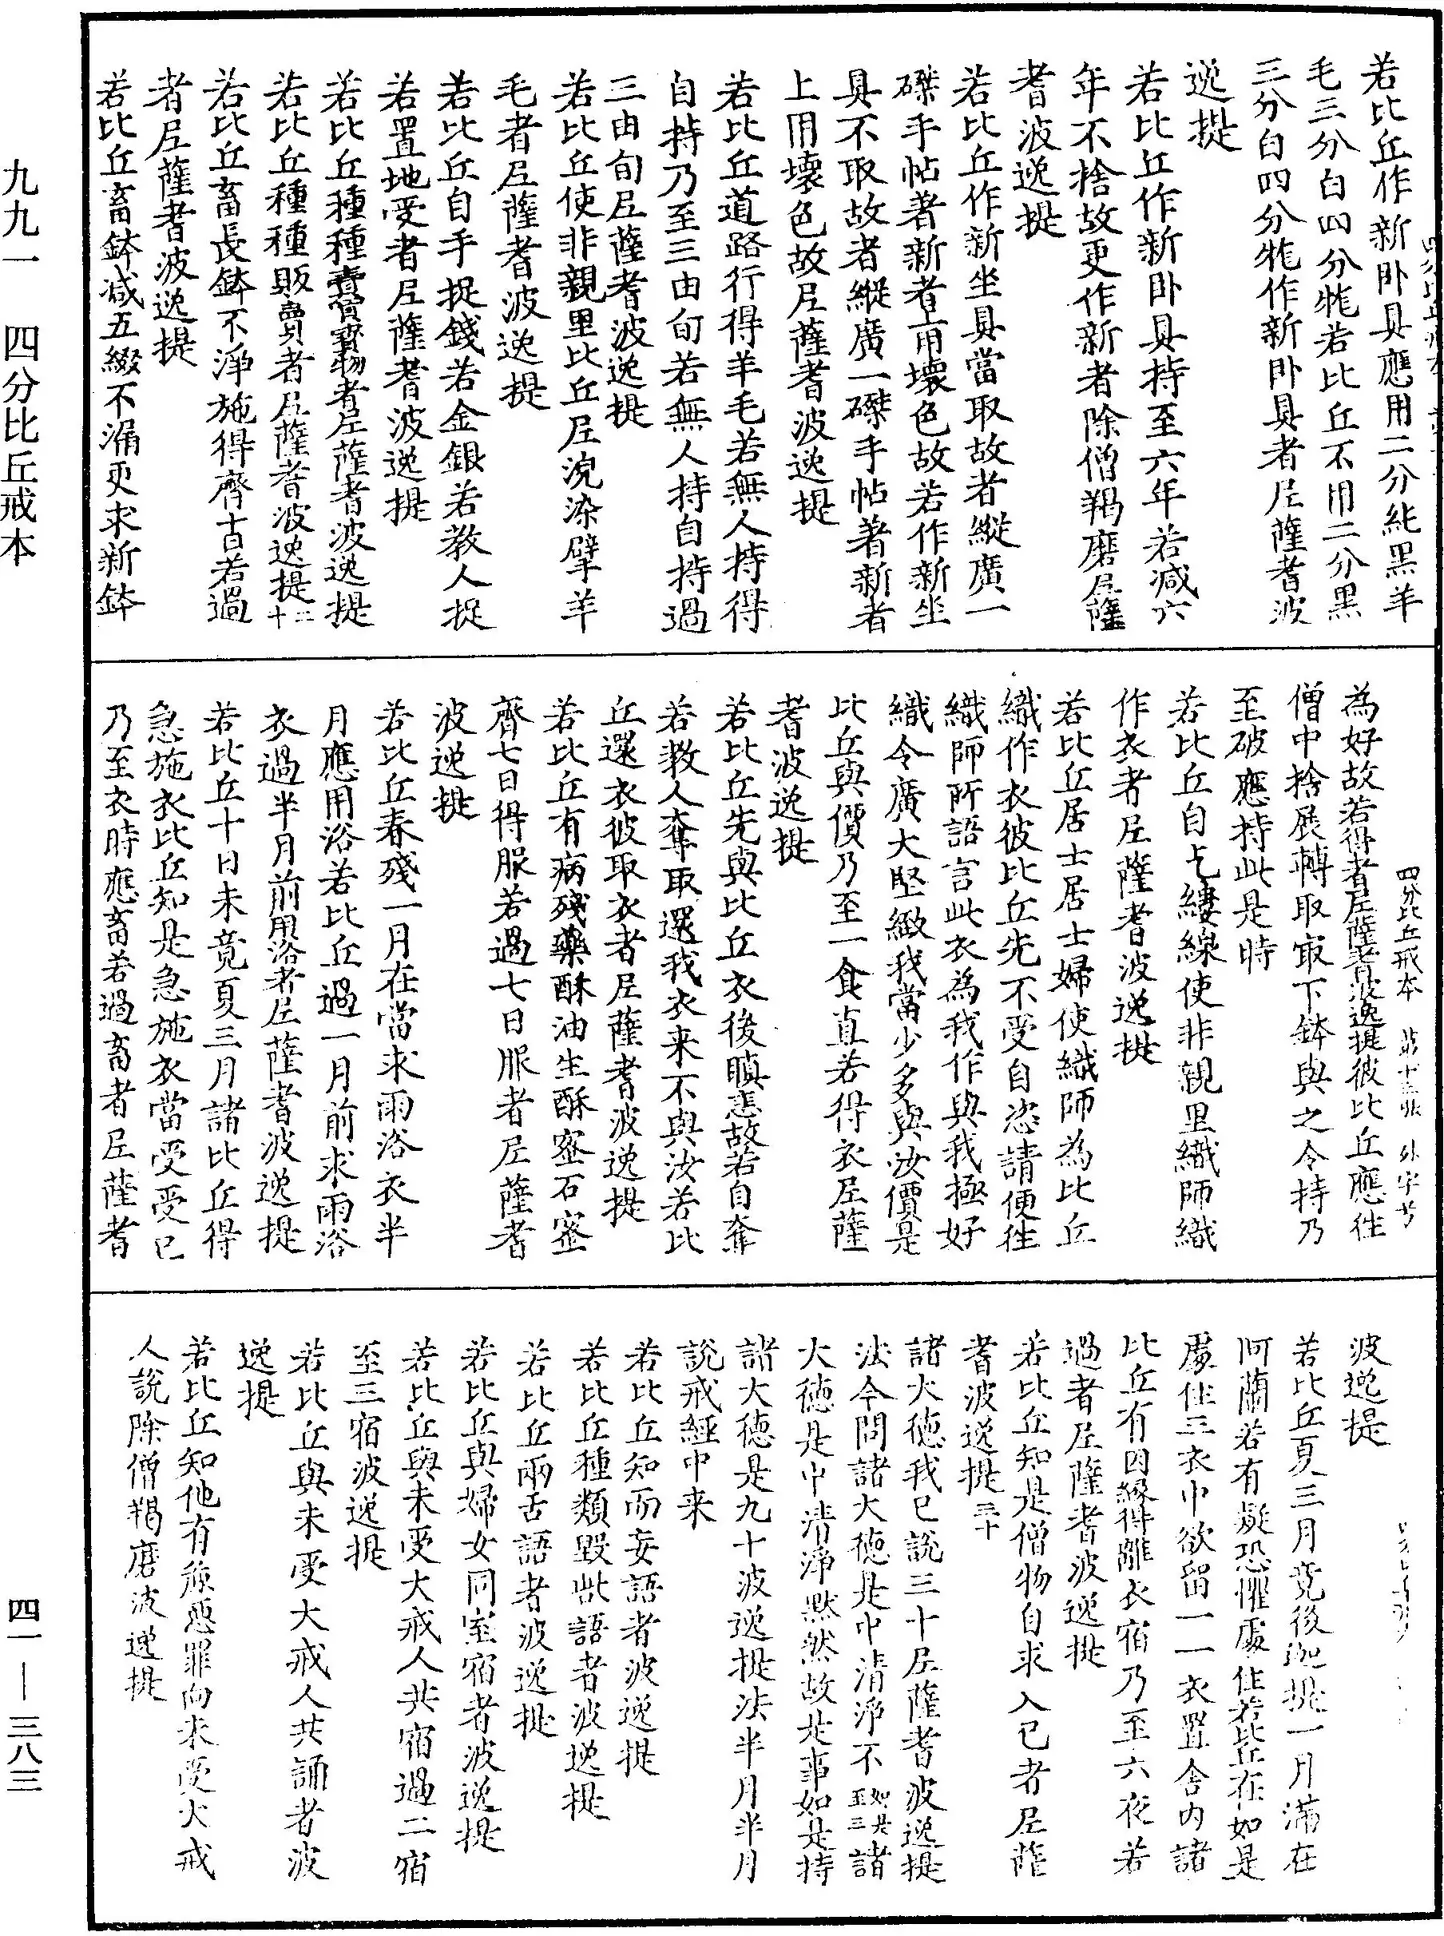 若比丘作新卧具應用二分純黑羊
毛三分白四分牻若比丘不用二分黑
三分白四分牻作新卧具者尼薩耆波
逸提
若比丘作新卧具持至六年若減六
年不捨故更作新者除僧羯磨尼薩
耆波逸提
若比丘作新坐具當取故者縱廣一
磔手帖著新者上用壞色故若作新坐
具不取故者縱廣一磔手帖著新者
上用壞色故尼薩耆波逸提
若比丘道路行得羊毛若無人持得
自持乃至三由旬若無人持自持過
三由旬尼薩耆波逸提
若比丘使非親里比丘尼浣染擘羊
毛者尼薩耆波逸提
若比丘自手捉錢若金銀若教人捉
若置地受者尼薩耆波逸提
若比丘種種賣寶物者尼薩耆波逸提
若比丘種種販賣者尼薩耆波逸提二十
若比丘畜長鉢不淨施得齊十日若過
者尼薩耆波逸提
若比丘畜鉢減五綴不漏更求新鉢
為好故若得者尼薩耆波逸提彼比丘應往
僧中捨展轉取最下鉢與之令持乃
至破應持此是時
若比丘自乞縷線使非親里織師織
作衣者尼薩耆波逸提
若比丘居士居士婦使織師為比丘
織作衣彼比丘先不受自恣請便往
織師所語言此衣為我作與我極好
織令廣大堅緻我當少多與汝價是
比丘與價乃至一食直若得衣尼薩
耆波逸提
若比丘先與比丘衣後瞋恚故若自奪
若教人奪取還我衣来不與汝若比
丘還衣彼取衣者尼薩耆波逸提
若比丘有病殘藥酥油生酥蜜石蜜
齊七日得服若過七日服者尼薩耆
波逸提
若比丘春殘一月在當求雨浴衣半
月應用浴若比丘過一月前求雨浴
衣過半月前用浴者尼薩耆波逸提
若比丘十日未竟夏三月諸比丘得
急施衣比丘知是急施衣當受受已
乃至衣時應畜若過畜者尼薩耆
波逸提
若比丘夏三月竟後迦提一月滿在
阿蘭若有疑恐懼處住若比丘在如是
處住三衣中欲留一一衣置舍內諸
比丘有因緣得離衣宿乃至六夜若
過者尼薩耆波逸提
若比丘知是僧物自求入已者尼薩
耆波逸提三十
諸大德我已說三十尼薩耆波逸提
法今問諸大德是中清淨不如是至三諸
大德是中清淨默然故是事如是持
諸大德是九十波逸提法半月半月
說戒經中来
若比丘知而妄語者波逸提
若比丘種類毀呰語者波逸提
若比丘兩舌語者波逸提
若比丘與婦女同室宿者波逸提
若比丘與未受大戒人共宿過二宿
至三宿波逸提
若比丘與未受大戒人共誦者波
逸提
若比丘知他有麤惡罪向未受大戒
人說除僧羯磨波逸提
四分比丘戒本
九九一 四分比丘戒本
四一—三八三